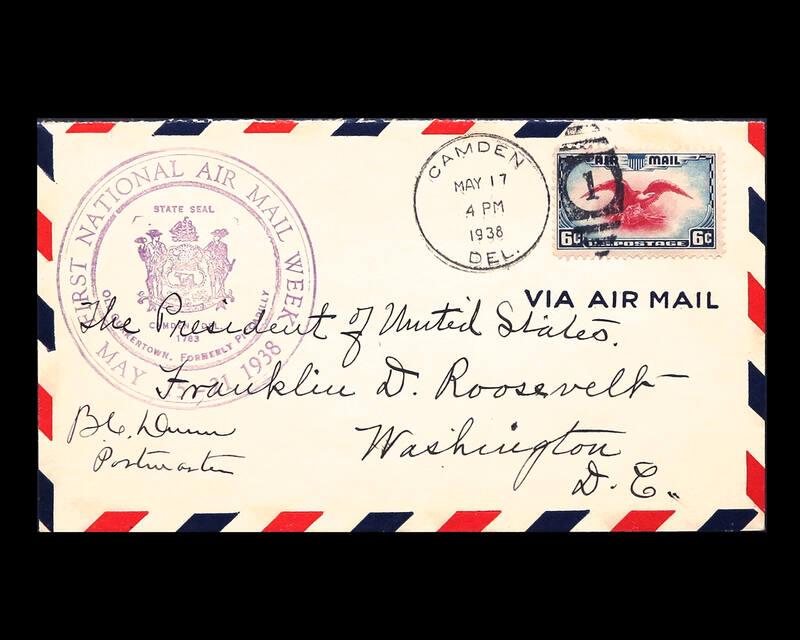 FIRST NATIONAL AIR MAIL WEEK
STATE SEAL
CAMDEN, DEL.
1783
QUAKERTOWN, FORMERLY
MAY 15-21 1938
CAMDEN
MAY 17
4 PM
1938
DEL.
1
AIR MAIL
6¢ U.S. POSTAGE 6¢
VIA AIR MAIL
The President of United States.
Franklin D. Roosevelt
Washington
D. C.
Postmaster